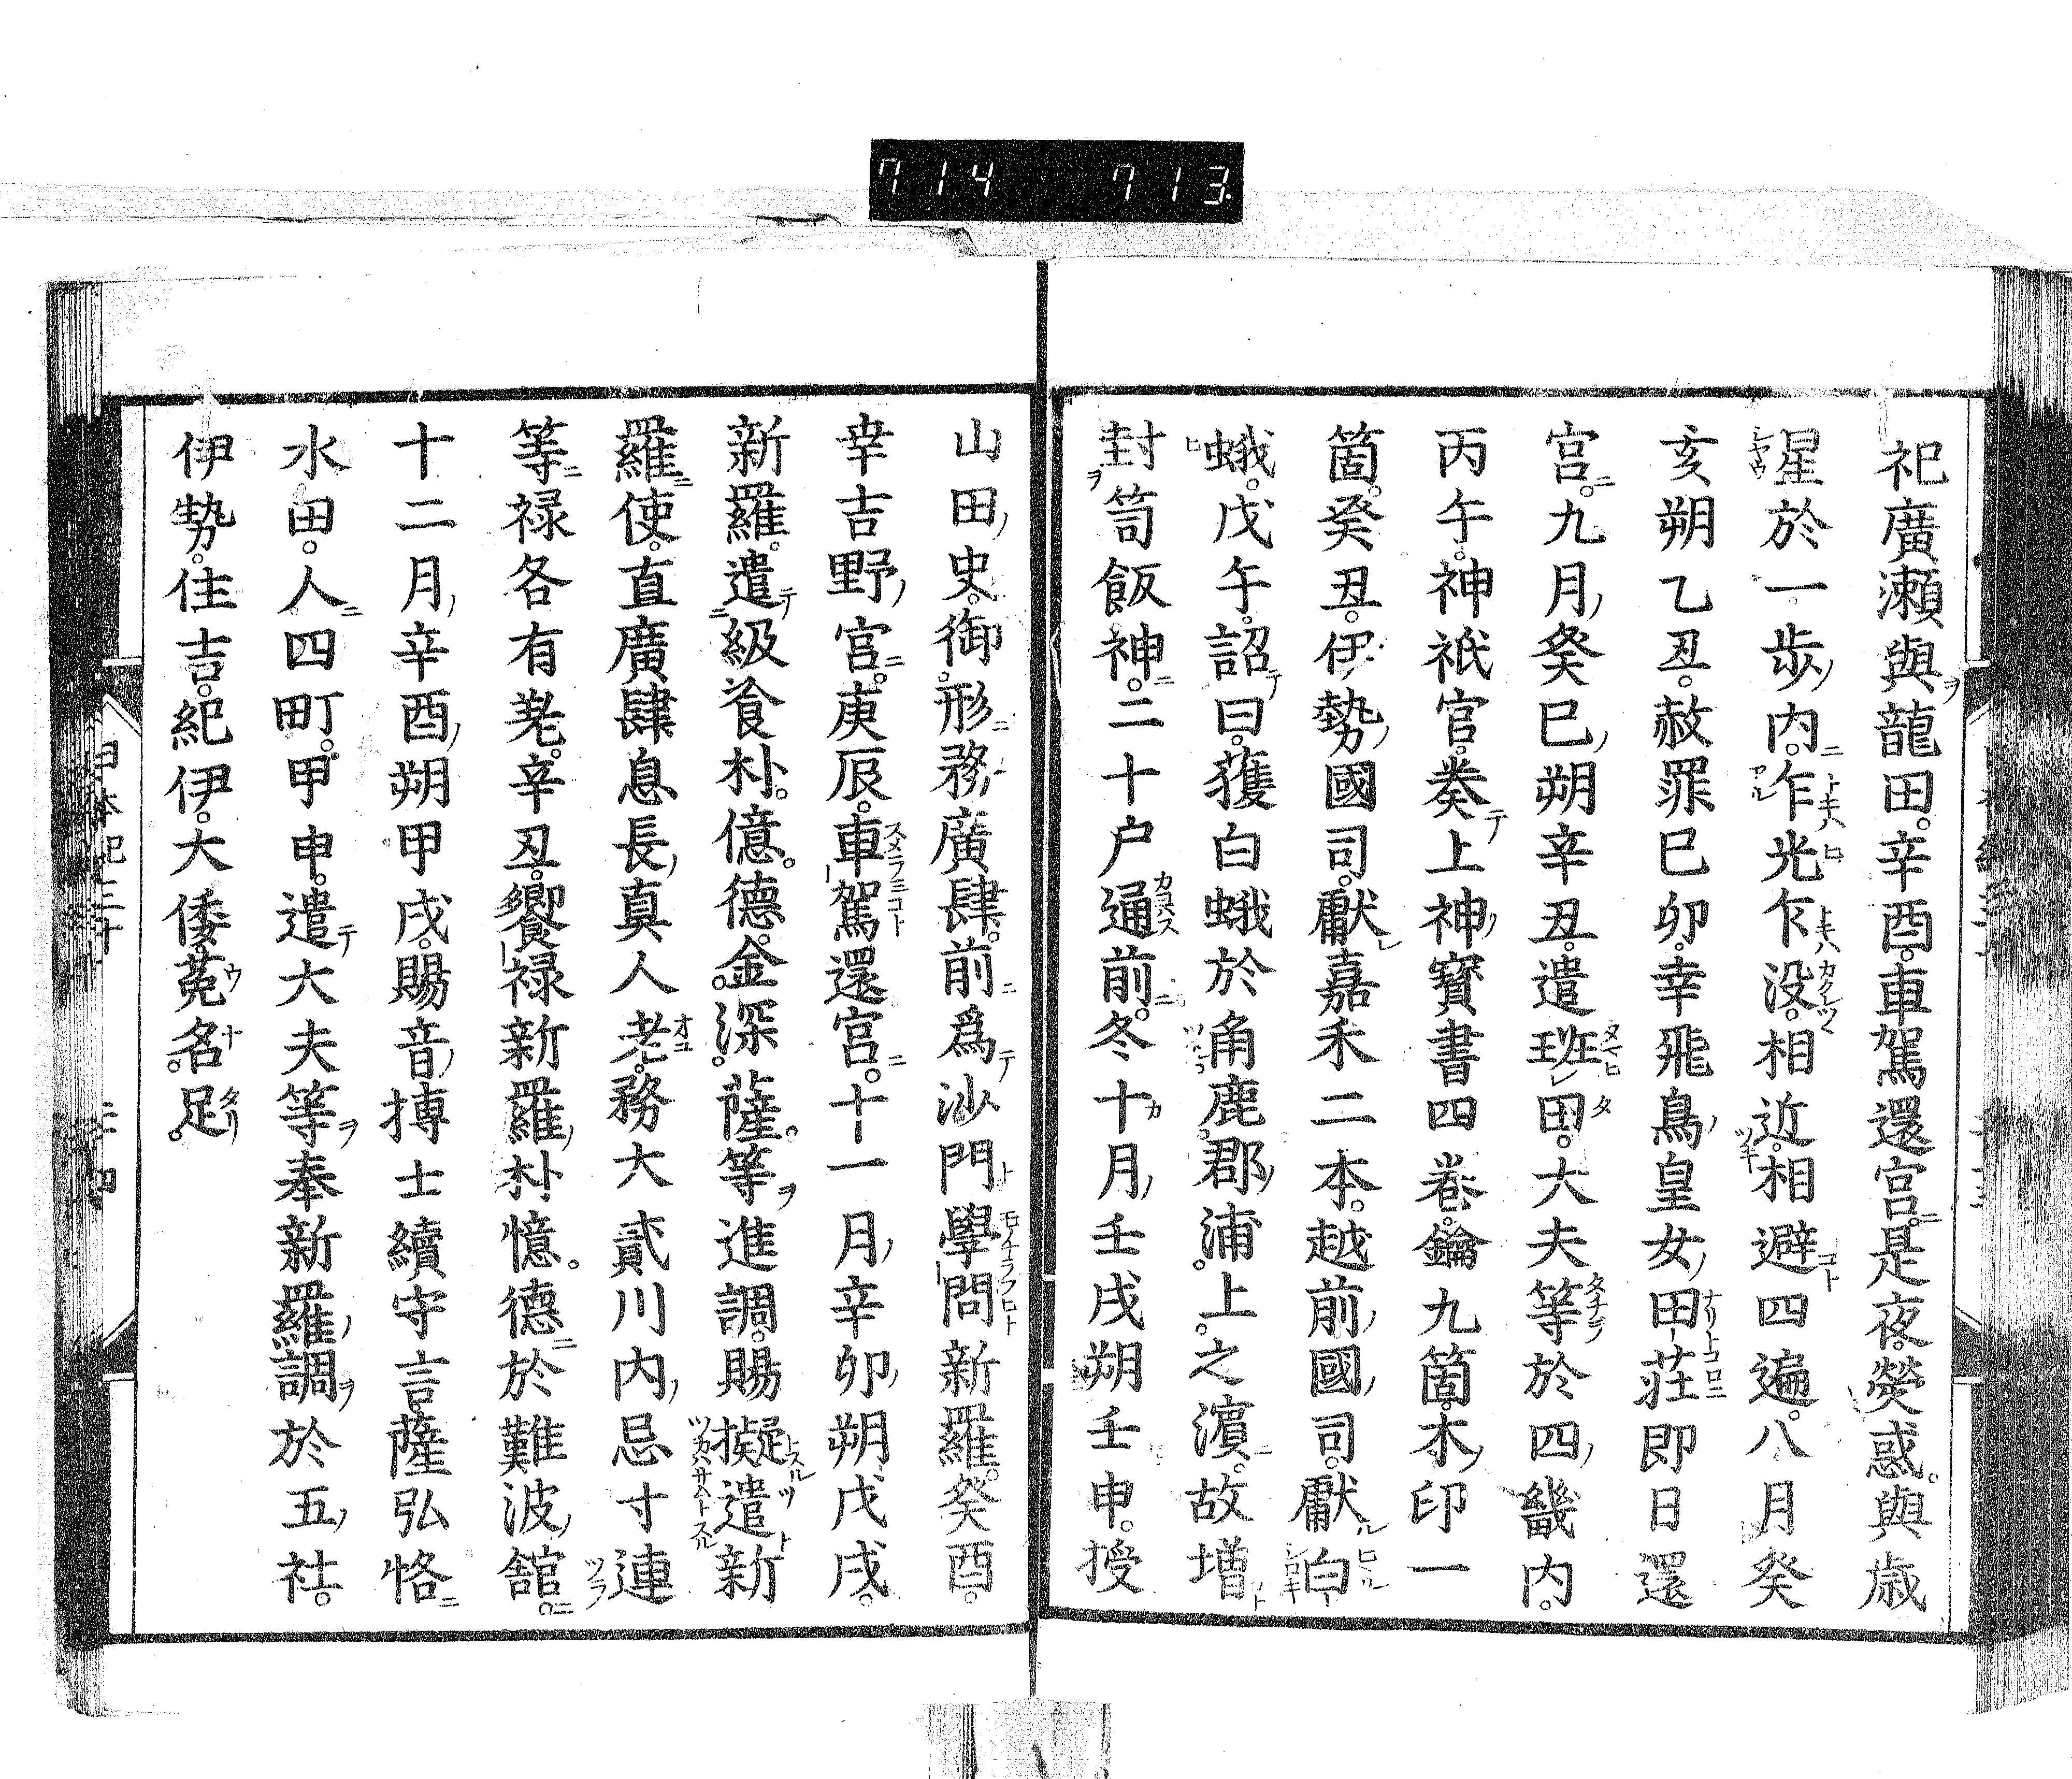 714 713
祀廣瀬與龍田。辛酉。車駕還宮。是夜。熒惑。與歳
星於一歩内。乍光乍没。相近。相避四遍。八月癸
亥朔乙丑。赦罪巳卯。幸飛鳥皇女田荘即日還
宮。九月癸巳朔辛丑。遣班田。大夫等於四畿内。
丙午。神祇官。奏上神寶書四卷。鑰九箇。木印一
箇。癸丑。伊勢國司。獻嘉禾二本。越前國司。獻白
蛾。戊午。詔曰。獲白蛾於角鹿郡浦。上。之濱。故増
封笥飯神。二十户通前。冬十月壬戌朔壬申。授
山田史。御形務廣肆。前爲沙門學問新羅。癸酉。
幸吉野宮。庚辰。車駕還宮。十一月辛卯朔戊戌。
新羅。遣級飡朴。億。德。金。深。薩。等進調。賜擬遣新
羅使。直廣肆息長真人老。務大貳川内忌寸連
等禄各有差。辛丑。饗禄新羅朴憶。德於難波館。
十二月辛酉朔甲戌。賜音博士續守言。薩弘恪
水田。人四町。甲申。遣大夫等奉新羅調於五社。
伊勢。住吉。紀伊。大倭。菟名。足。